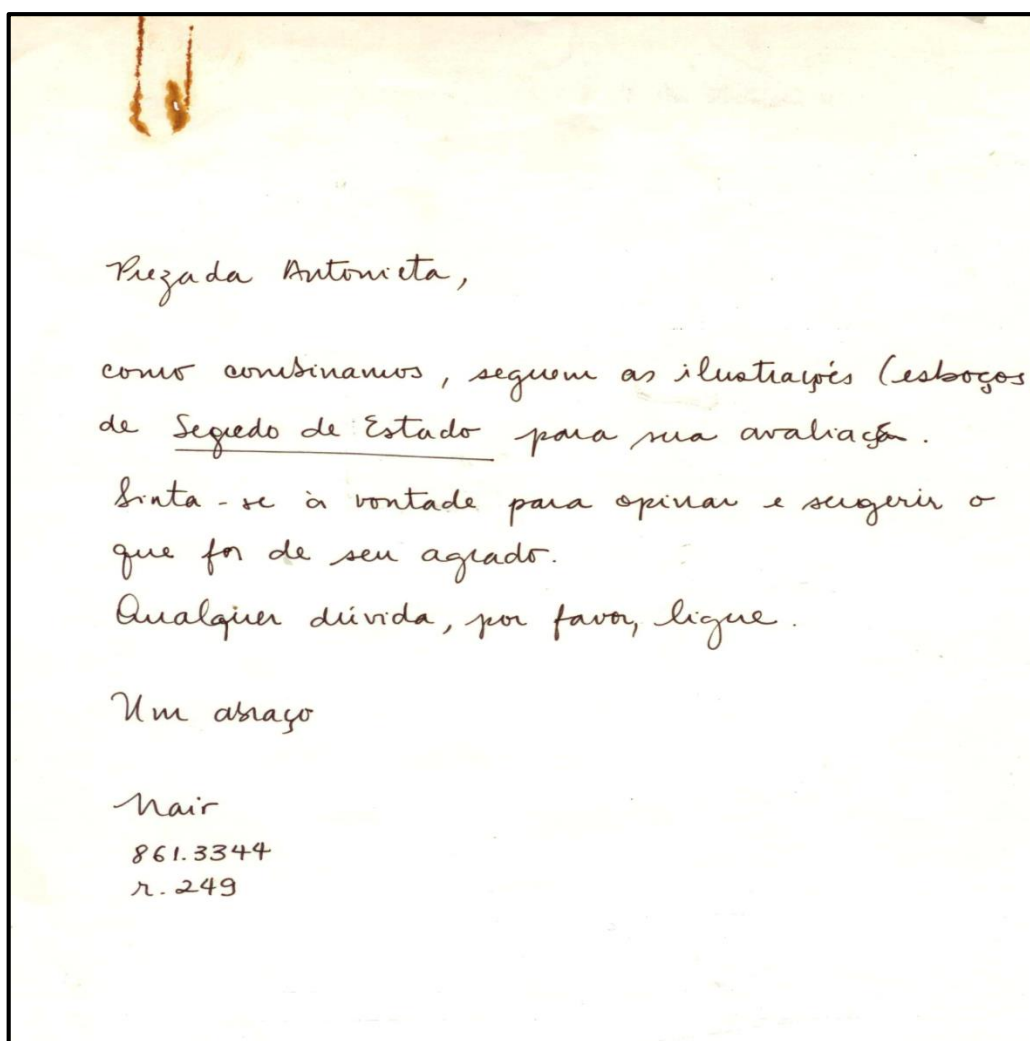 Prezada Antonieta,
como combinamos, seguem as ilustrações (esboços
de Segredo de Estado para sua avaliação.
Sinta-se à vontade para opinar e sugerir o
que for de seu agrado.
Qualquer dúvida, por favor, ligue.
Um abraço
Nair
861.3344
r. 249